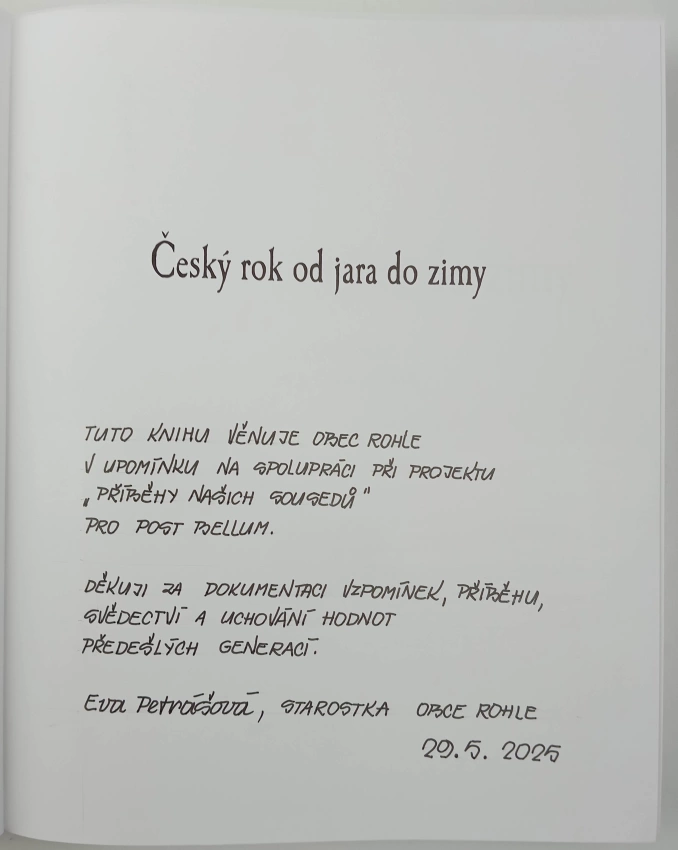 Český rok od jara do zimy
TUTO KNIHU VĚNUJE OBEC ROHLE
V UPOMÍNKU NA SPOLUPRÁCI PŘI PROJEKTU
„PŘÍBĚHY NAŠICH SOUSEDŮ"
PRO POST BELLUM.
DĚKUJI ZA DOKUMENTACI VZPOMÍNEK, PŘÍBĚHU,
SVĚDECTVÍ A UCHOVÁNÍ HODNOT
PŘEDEŠLÝCH GENERACÍ.
Eva Petrášová, STAROSTKA OBCE ROHLE
29.5. 2025